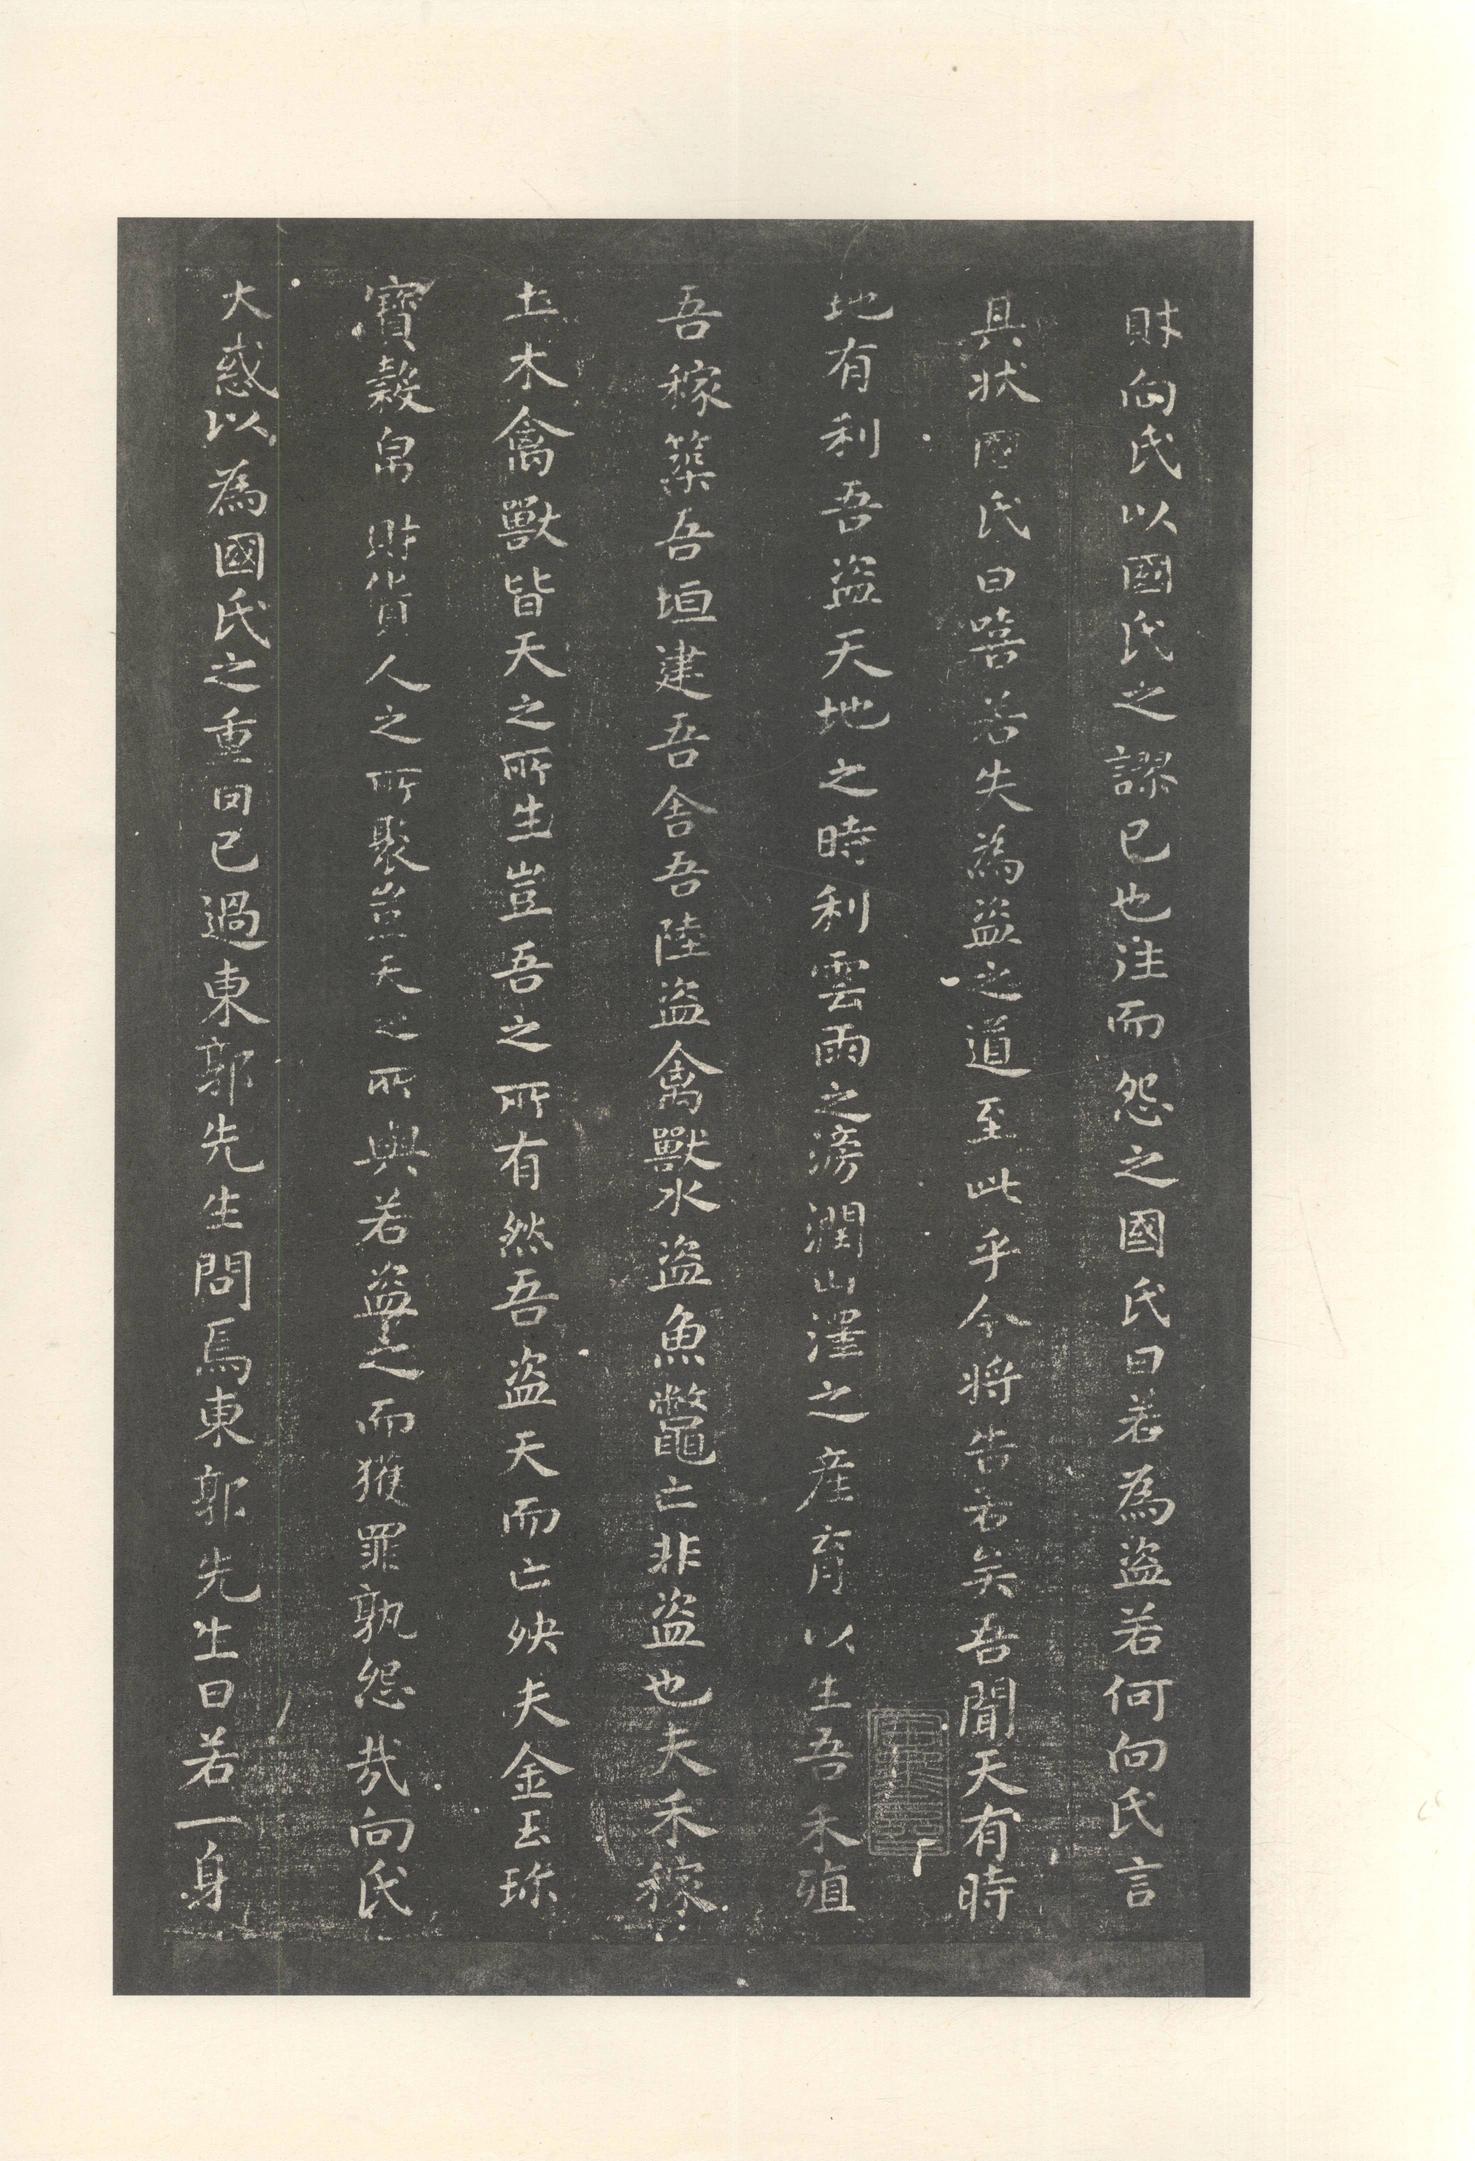 財向氏以國氏之謬已也注而怨之國氏曰若為盜若何向氏言
其狀國氏曰嘻若失為盜之道至此乎今將告若矣吾聞天有時
地有利吾盜天地之時利雲雨之滂潤山澤之產育以生吾禾殖
吾稼築吾垣建吾舍吾陸盜禽獸水盜魚鼈亡非盜也夫禾稼
土木禽獸皆天之所生豈吾之所有然吾盜天而亡殃夫金玉珎
寶穀帛財貨人之所聚豈天之所與若盜之而獲罪孰怨哉向氏
大惑以為國氏之重罔己過東郭先生問焉東郭先生曰若一身